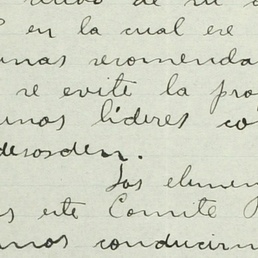 de su
en la cual ere
unas recomenda
se evite la pro
unos líderes co
desorden.
Los elemen
este Comite
conducirn